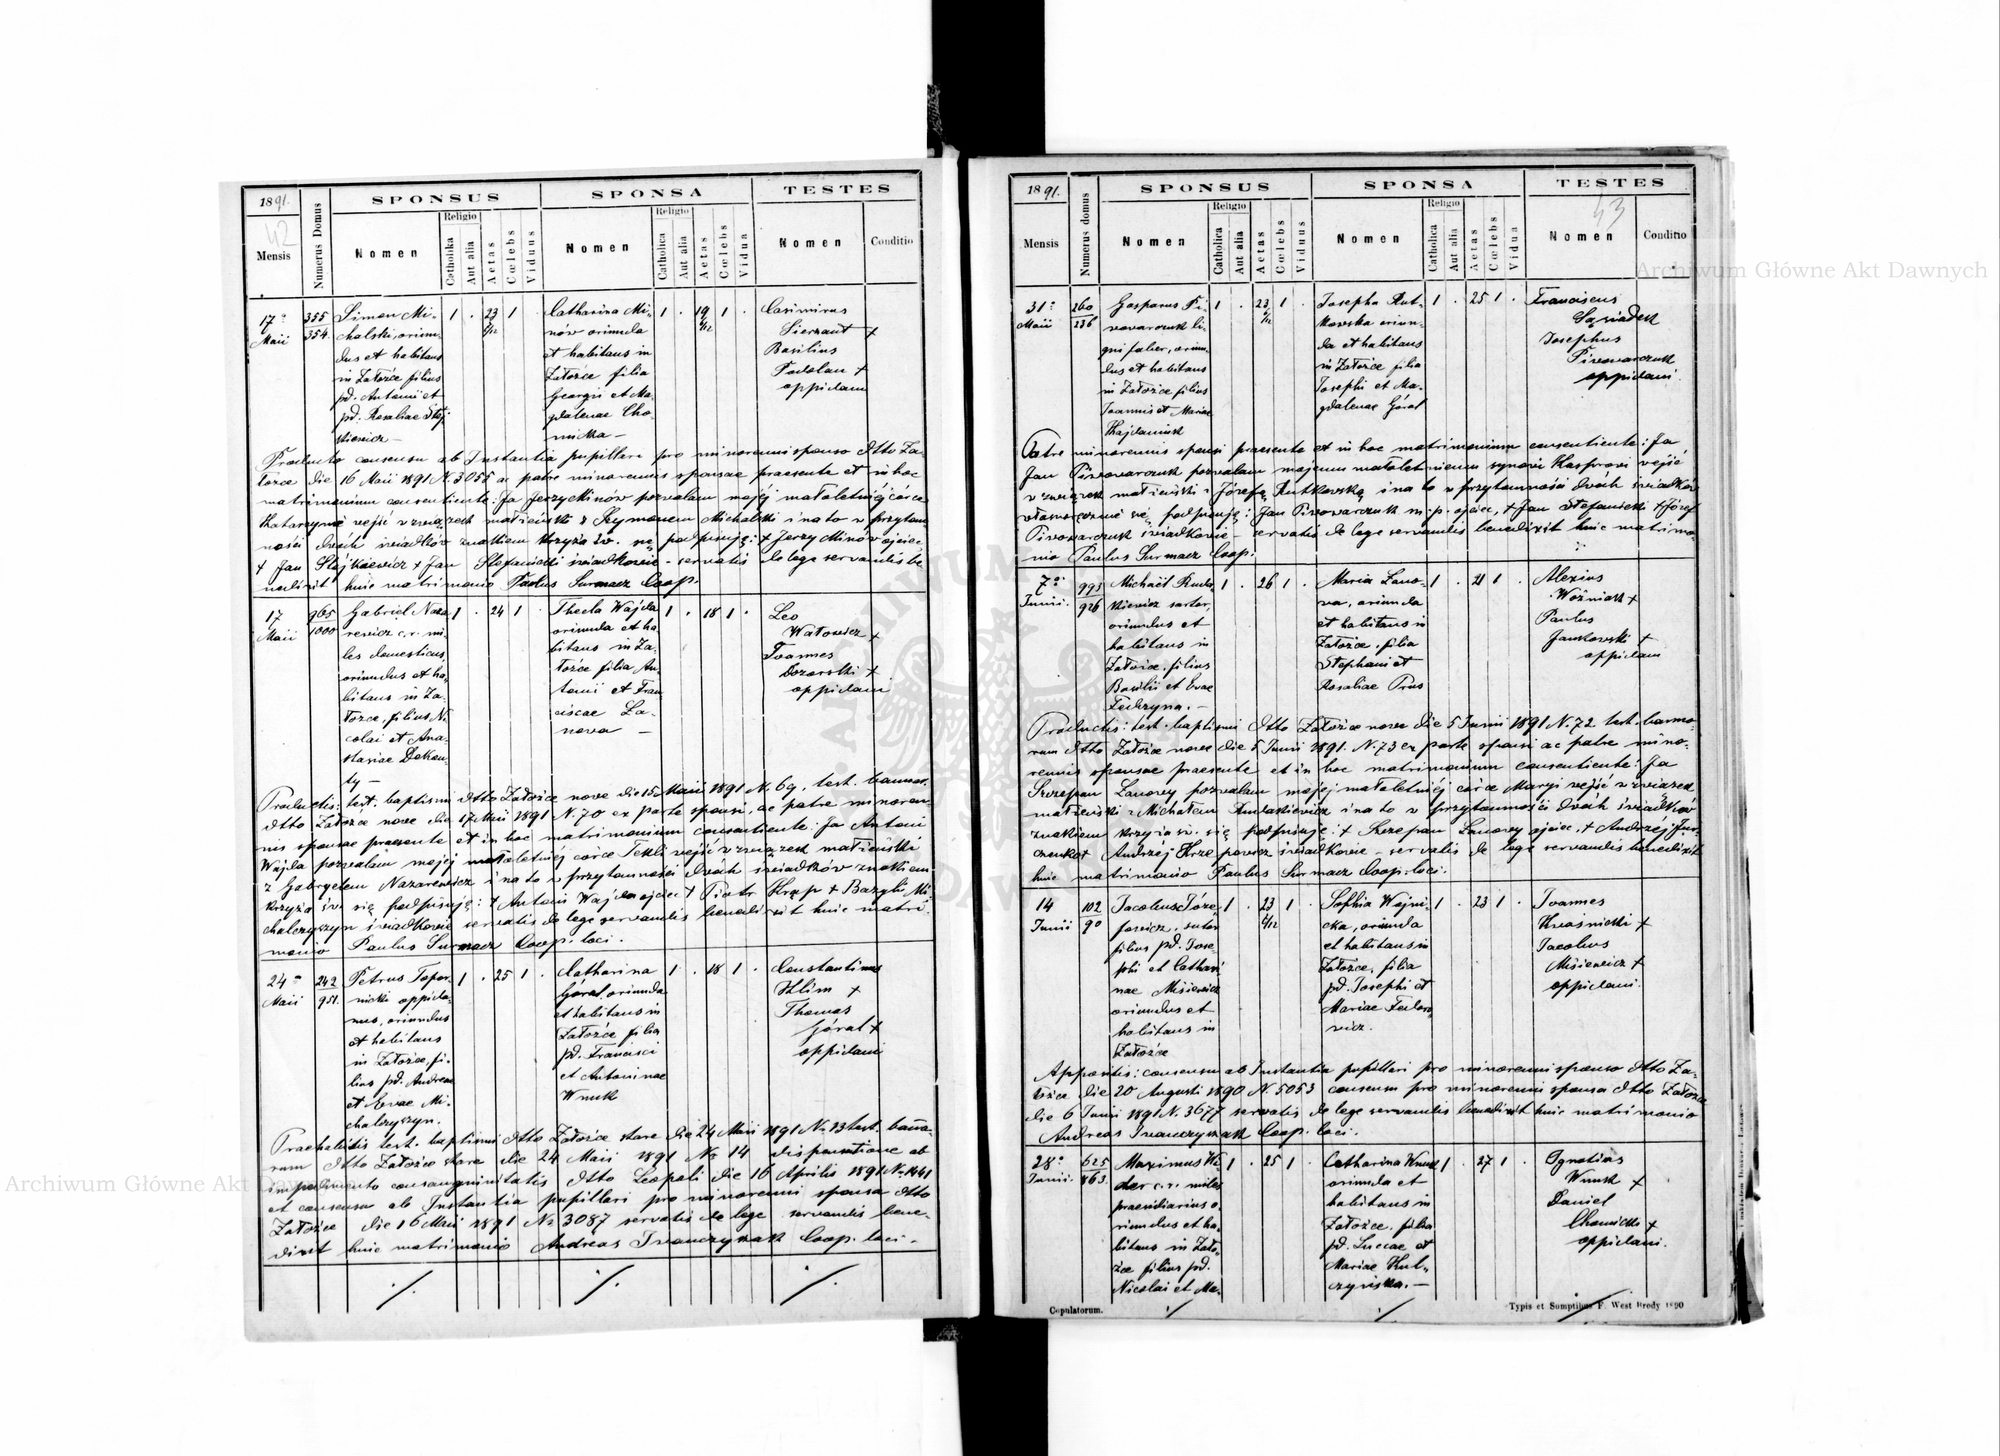 1891.
42
Mensis
Numerus Domus
SPONSUS
Nomen
Religio
Catholika
Aut alia
Aetas
Cœlebs
Viduus
SPONSA
Nomen
Religio
Catholica
Aut alia
Aetas
Cœlebs
Vidua
TESTES
Nomen
Conditio
17ª
Maii
355
354
Simon Mi-
chalski, oriun-
dus et habitans
in Załoźce filius
pd. Antonii et
pd. Rosaliae Stoj-
kiewicz –
1 . 23 1
2/12
Catharina Mi-
nów oriunda
et habitans in
Załoźce filia
Georgii et Ma-
gdalenae Cho-
micka –
1 . 19 1 .
Casimirus
Sierzant +
Basilius
Podolan +
oppidani
Producto consensu ab Instantia pupillari pro minorenni sponso dtto Za-
łoźce die 16 Maii 1891 N. 3055 ac patre minorennis sponsae praesente et in hoc
matrimonium consentiente: Ja Jerzy Minów pozwalam mojej małoletniej córce
Katarzynie wejść w związek małżeński z Szymonem Michalski i na to w przytom
ności dwóch świadków znakiem krzyża św. się podpisują: + Jerzy Minów ojciec
+ Jan Stojkiewicz + Jan Stefanicki świadkowie – servatis de lege servandis be
nedixit huic matrimonio Paulus Surmacz Coop.
17
Maii
965
1000
Gabriel Naza-
rewicz c.r. mi-
les domesticus
oriundus et ha-
bitans in Za-
łoźce, filius Ni-
colai et Ana-
stasiae
ty –
1 . 24 1
Thecla Wajda
oriunda et ha-
bitans in Za-
łoźce filia An-
tonii et Fran
ciscae La-
nova –
1 . 18 1 .
Leo
Wałowicz +
Joannes
Dozorski +
oppidani
Productis: test. baptismi dtto Załoźce nove die 15 Maii 1891 N. 69, test. bannor.
dtto Załoźce nove die 17 Maii 1891 N. 70 ex parte sponsi, ac patre minoren
nis sponsae praesente et in hoc matrimonium consentiente: Ja Antoni
Wajda pozwalam mojej małoletniej córce Tekli wejść w związek małżeński
z Gabryelem Nazarewicz i na to w przytomności dwóch świadków znakiem
krzyża św. się podpisują: + Antoni Wajda ojciec + Piotr Kręp + Bazyli Mi
chalczyszyn świadkowie servatis de lege servandis benedixit huic matri
monio Paulus Surmacz Coop. loci.
24ª
Maii
242
951.
Petrus Topor-
nicki oppida-
nus, oriundus
et habitans
in Załoźce, fi-
lius pd. Andreae
et Evae Mi-
chalczyszyn.
1 . 25 1 .
Catharina
Góral, oriunda
et habitans in
Załoźce filia
pd. Francisci
et Antoninae
Wnuk
1 . 18 1 .
Constantinus
Klim +
Thomas
Góral +
oppidani
Praehabitis test. baptismi dtto Załoźce stare die 24 Maii 1891 Nr. 13 test. banno-
rum dtto Załoźce stare die 24 Maii 1891 Nr 14 dispensatione ab
impedimento consanguinitatis dtto Leopoli die 16 Aprilis 1891 Nr. 1441
et consensu ab Instantia pupillari pro minorenni sponsa dtto
Załoźce die 16 Maii 1891 Nr 3087 servatis de lege servandis bene-
dixit huic matrimonio Andreas Iwanczyszak Coop. loci.
1891.
43
Mensis
Numerus domus
SPONSUS
Nomen
Religio
Catholica
Aut alia
Aetas
Cœlebs
Viduus
SPONSA
Nomen
Religio
Catholica
Aut alia
Aetas
Cœlebs
Vidua
TESTES
Nomen
Conditio
31ª
Maii
260
236
Gasparus Pi-
vovarczuk li-
gni faber, oriun-
dus et habitans
in Załoźce filius
Joannis et Mariae
Hajdaniuk
1 . 23 1 .
Josepha Rut-
kowska oriun-
da et habitans
in Załoźce filia
Josephi et Ma-
gdalenae Góral
1 . 25 1 .
Franciscus
Sąsiadek
Josephus
Pivovarczuk
oppidani.
Patre minorennis sponsi praesente et in hoc matrimonium consentiente: Ja
Jan Pivovarczuk pozwalam mojemu małoletniemu synowi Kasprowi wejść
w związek małżeński z Józefą Rutkowską i na to w przytomności dwóch świadków
własnoręcznie się podpisują: Jan Pivovarczuk m.p. ojciec, + Jan Stefanicki + Józef
Pivovarczuk świadkowie – servatis de lege servandis benedixit huic matrimo-
nio Paulus Surmacz Coop.
7ª
Junii.
993
926
Michaël Ruda-
kiewicz sartor,
oriundus et
habitans in
Załoźce, filius
Basilii et Evae
Fedczyna. –
1 . 26 1 .
Maria Lano-
va, oriunda
et habitans in
Załoźce, filia
Stephani et
Rosaliae Prus
1 . 21 1 .
Alexius
Woźniak +
Paulus
Jankowski +
oppidani
Productis: test. baptismi dtto Załoźce nove die 5 Junii 1891 N. 72 test. banno-
rum dtto Załoźce nove die 5 Junii 1891. N. 73 ex parte sponsi ac patre mino-
rennis sponsae praesente et in hoc matrimonium consentiente: Ja
Szczepan Lanowy pozwalam mojej małoletniej córce Maryi wejść w związek
małżeński z Michałem Rudakiewicz i na to w przytomności dwóch świadków
znakiem krzyża św. się podpisuję: + Szczepan Lanowy ojciec, + Andrzej Jur-
czenko + Andrzej Krze powsz świadkowie – servatis de lege servandis benedixit
huic matrimonio Paulus Surmacz Coop. loci.
14
Junii
102
90
Jacobus Józe-
fowicz, sutor
filius pd. Jose
phi et Cathari
nae Misiewicz
oriundus et
habitans in
Załoźce
1 . 23 1
Sophia Wojni-
cka, oriunda
et habitans in
Załoźce, filia
pd. Josephi et
Mariae Fedoro-
wicz.
1 . 23 1 .
Joannes
Kwaśnicki +
Jacobus
Misiewicz +
oppidani.
Appositis: consensu ab Instantia pupillari pro minorenni sponso dtto Za-
łoźce die 20 Augusti 1890 N. 5053 consensu pro minorenni sponsa dtto Załoźce
die 6 Junii 1891 N. 3677 servatis de lege servandis benedixit huic matrimonio
Andreas Iwanczyszak Coop. loci.
28ª
Junii.
625
863.
Maximus Wi-
der c.r. miles
praesidiarius o-
riundus et ha-
bitans in Zało-
źce filius pd.
Nicolai et Ma-
1 . 25 1 .
Catharina Wnuk
oriunda et
habitans in
Załoźce, filia
pd. Lucae et
Mariae Kul-
czyńska. –
1 . 27 1 .
Ignatius
Wnuk +
Daniel
Chomicki +
oppidani.
Copulatorum.
Typis et Sumptibus F. West Brody 1890
Archiwum Główne Akt Dawnych
Archiwum Główne Akt Dawnych